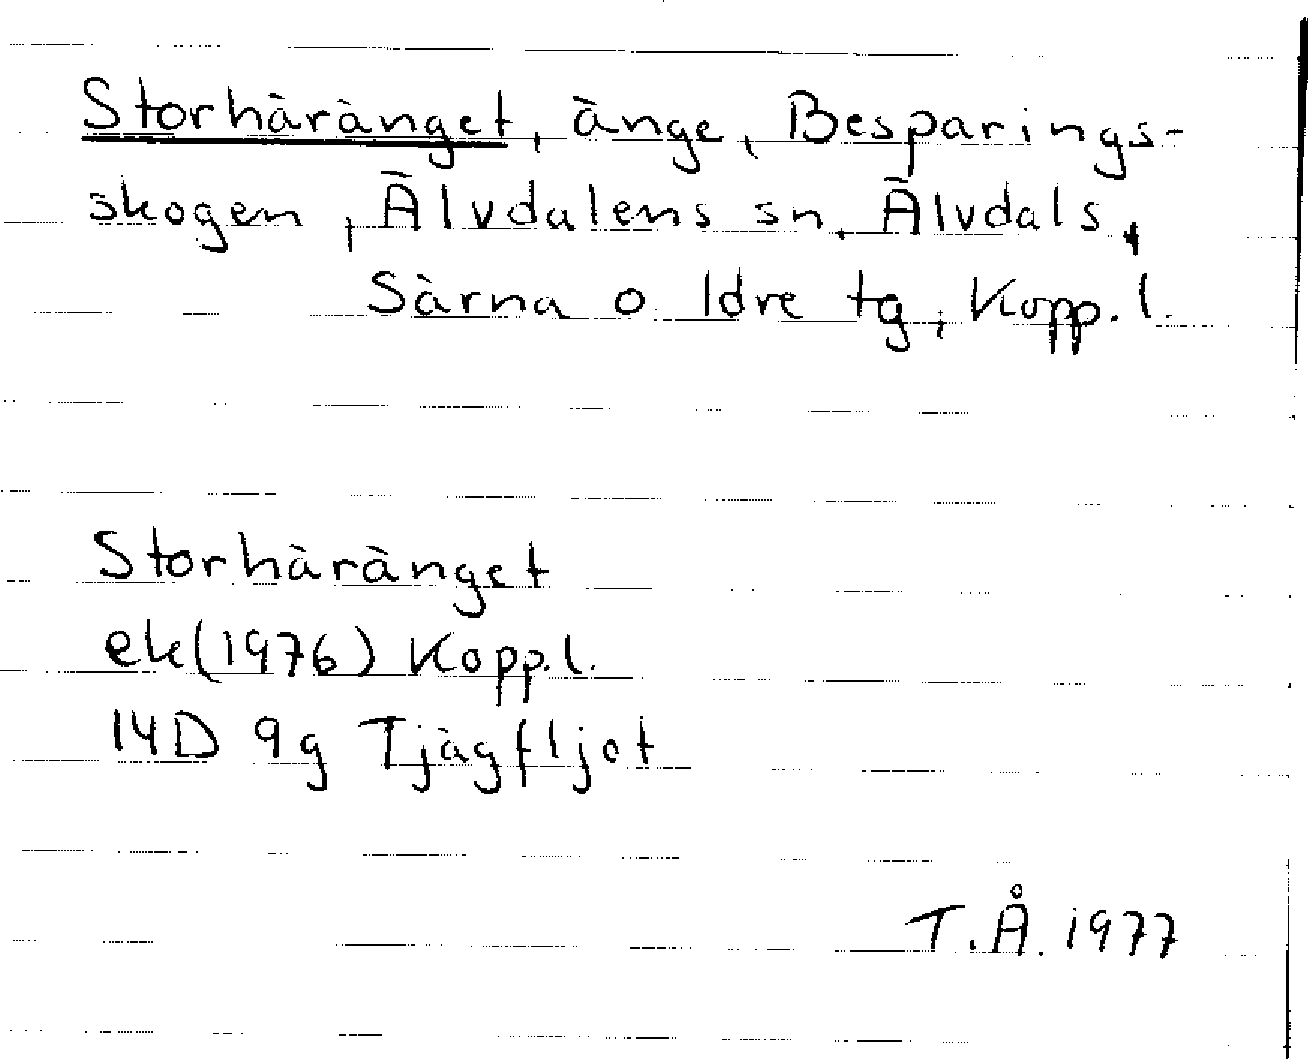 Storhäränget, änge, Besparings-
skogen, Älvdalens sn, Älvdals,
Särna o Idre tg, Kopp. l.
Storhäränget
ek (1976) Kopp. l.
14D 9g Tjägfljot
T.Å. 1977